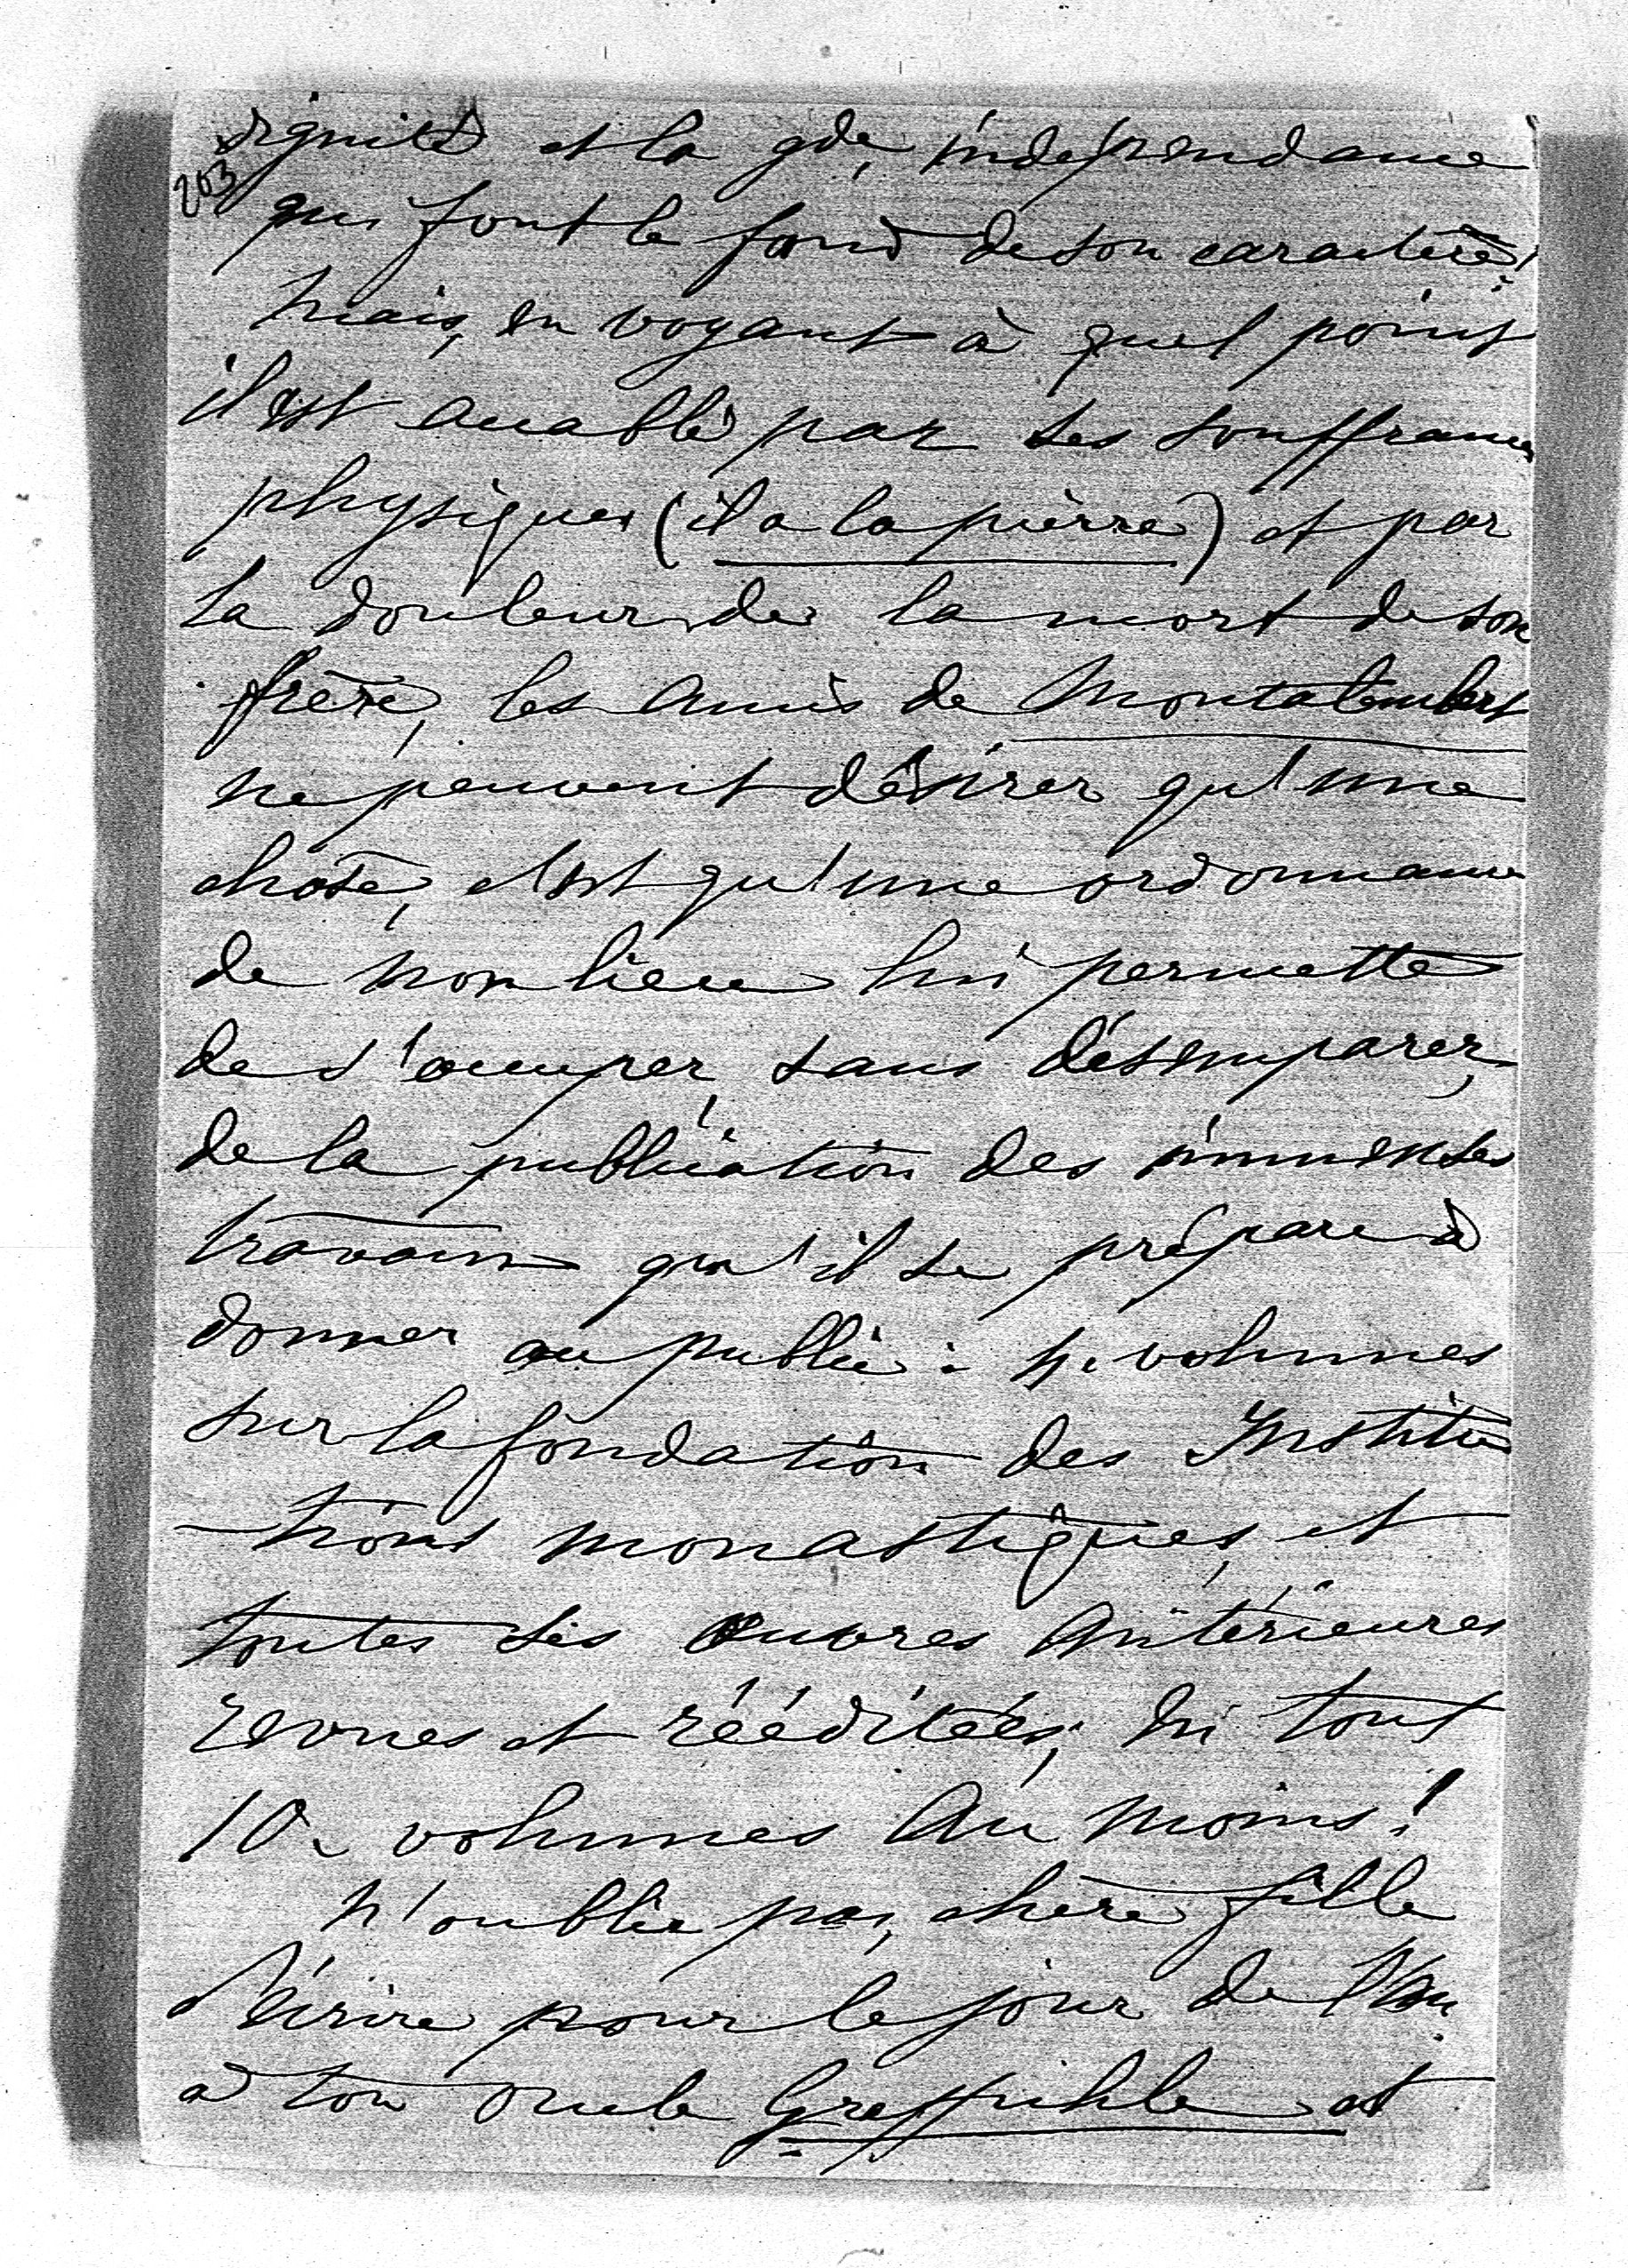 dignité et la gde indépendance
203
qui font le fond de son caractère!
Mais, en voyant à quel point
il est accablé par ses souffrances
physiques (il a la pierre) et par
la douleur de la mort de son
frère, les amis de Montalembert
ne peuvent désirer qu'une
chose, c'est qu'une ordonnance
de non lieu lui permette
de s'occuper, sans désemparer,
de la publication des immenses
travaux qu'il se prépare à
donner au public : volumes
sur la fondation des Institu
-tions monastiques, et
toutes ses œuvres antérieures
revues et rééditées; en tout
10 volumes au moins!
N'oublie pas, chère fille
d'écrire pour le jour de l'an
à ton oncle Greffulhe et